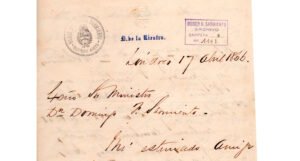 N. de la Riestra.
MUSEO H. SARMIENTO
ARCHIVO
Londres 17 Abril 186
Señor Ministro
Dn Domingo F. Sarmiento
Mi estimado amigo